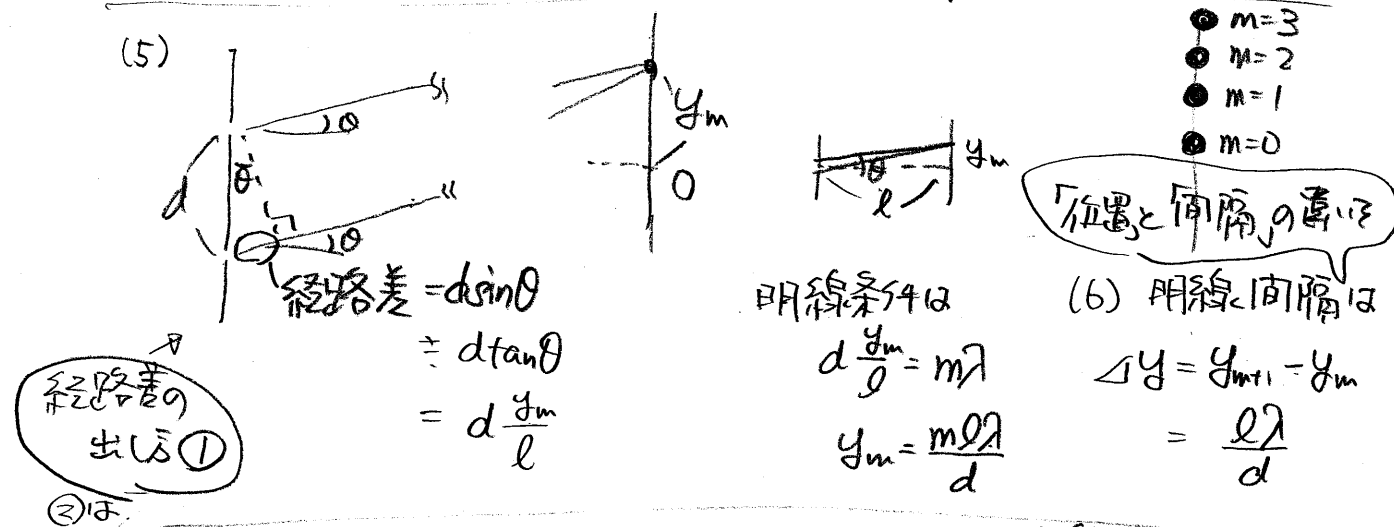 (5)
θ
d
θ
θ
経路差 = dsinθ
≒ dtanθ
= d y_m/l
経路差の
出し方①
②は
y_m
0
θ
l
y_m
明線条件は
d y_m/l = mλ
y_m = mlλ/d
m=3
m=2
m=1
m=0
「位置」と「間隔」の違い
(6) 明線間隔は
Δy = y_{m+1} - y_m
= lλ/d